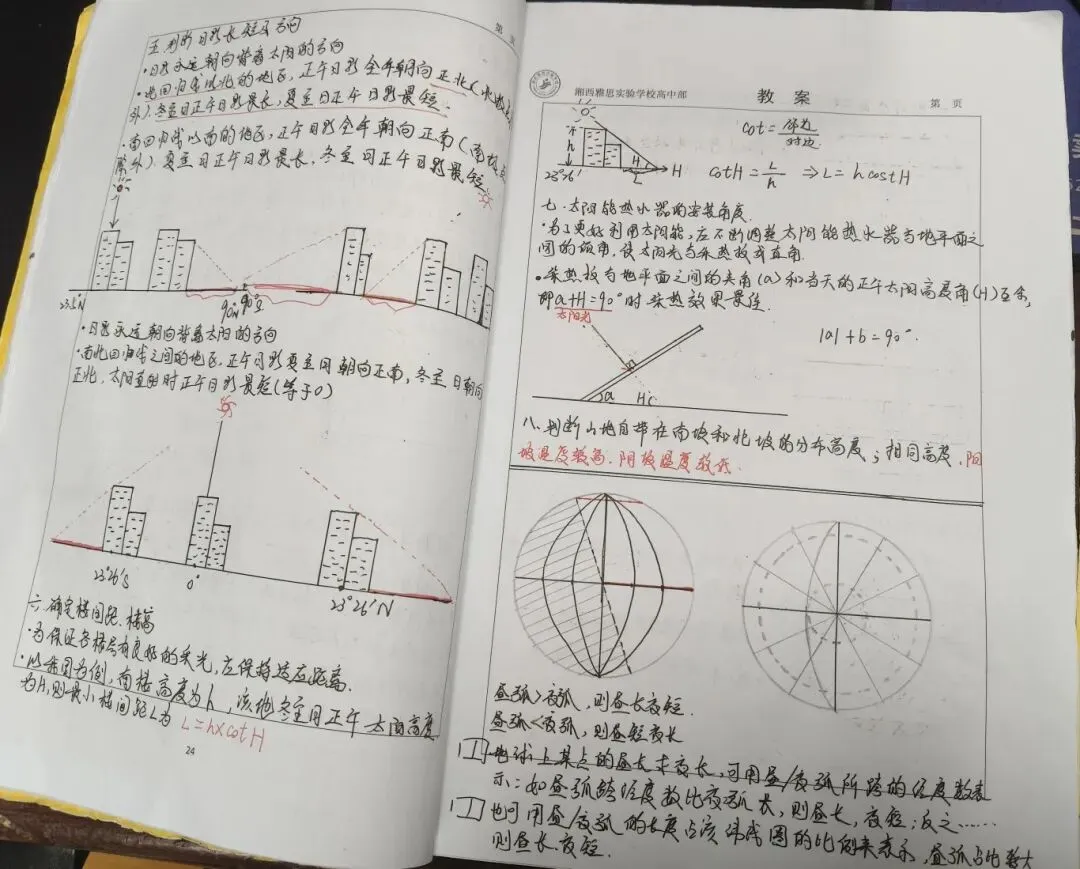 第 页
五.判断日影长短及方向
·日影永远朝向背离太阳的方向
·北回归线以北的地区,正午日影全年朝向正北(北极点
外).冬至日正午日影最长,夏至日正午日影最短.
·南回归线以南的地区,正午日影全年朝向正南(南极点
除外)夏至日正午日影最长,冬至日正午日影最短.
23.5°N
90°N 90°S
·日影永远朝向背离太阳的方向
·南北回归线之间的地区,正午日影夏至日朝向正南,冬至日朝向
正北,太阳直射时正午日影最短(等于0)
23°26′S
0°
23°26′N
六.确定楼间距.楼高
·为保证各楼层有良好的采光,应保持适应距离.
·以我国为例,南楼高度为h,该地冬至日正午太阳高度
为H,则最小楼间距L为 L=h×cotH
24
湘西雅思实验学校高中部
教 案
第 页
cot=邻边/对边
h
H
H
L
23°26′
cotH=L/h ⇒L=hcostH
七.太阳能热水器的安装角度.
·为了更好利用太阳能,应不断调整太阳能热水器与地平面之
间的倾角,使太阳光与集热板成直角.
·集热板与地平面之间的夹角(a)和当天的正午太阳高度角(H)互余,
即a+H=90°时集热效果最佳.
太阳光
|a|+b=90°.
a
H
八.判断山地自带在南坡和北坡的分布高度;相同高度,阳
坡温度较高.阴坡温度较低.
昼弧>夜弧,则昼长夜短.
昼弧<夜弧,则昼短夜长
地球上某点的昼长末夜长,可用昼/夜弧所跨的经度数表
示:如昼弧跨经度数比夜弧长,则昼长,夜短;反之……
也可用昼/夜弧的长度占该纬线圈的比例来表示,昼弧占比数大
则昼长.夜短.